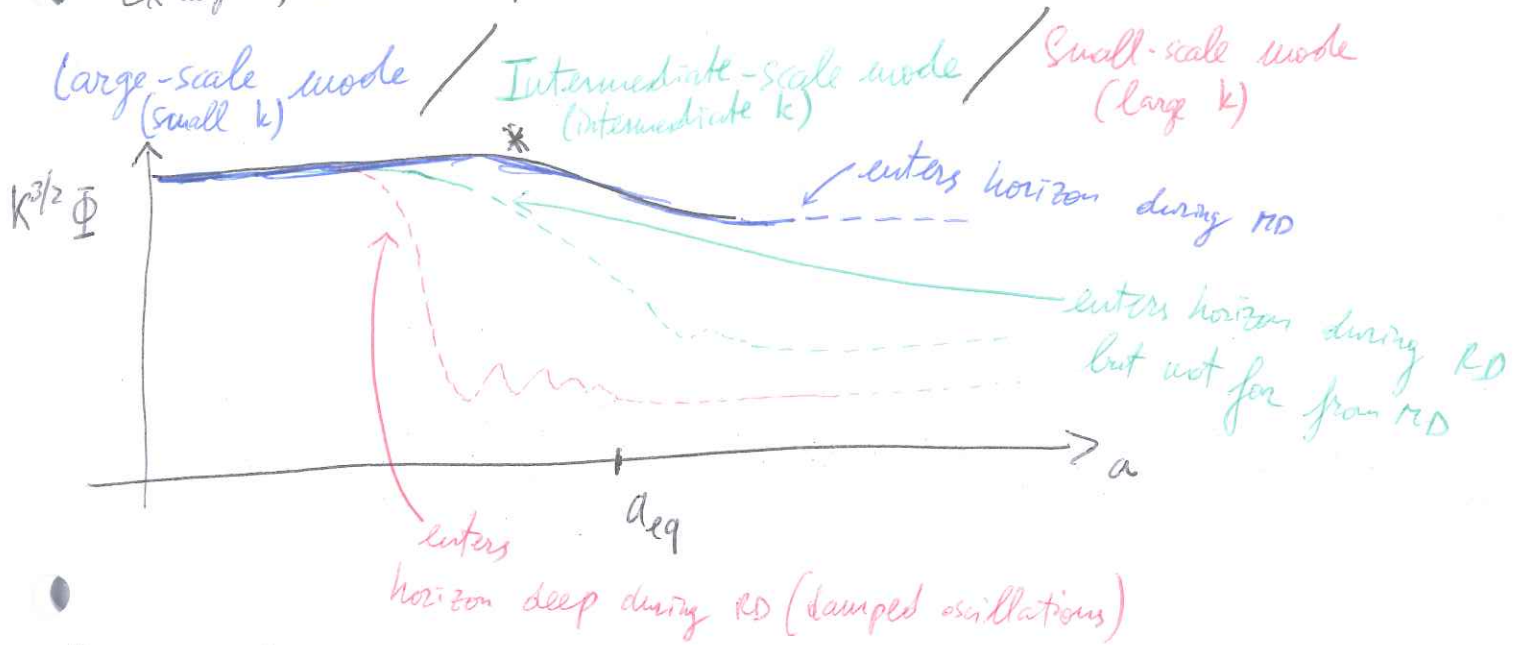 Large-scale mode / Intermediate-scale mode / Small-scale mode
(small k) (intermediate k) (large k)
*
K^{3/2} Φ
enters horizon during MD
enters horizon during RD
but not far from MD
a
a_{eq}
enters
horizon deep during RD (damped oscillations)